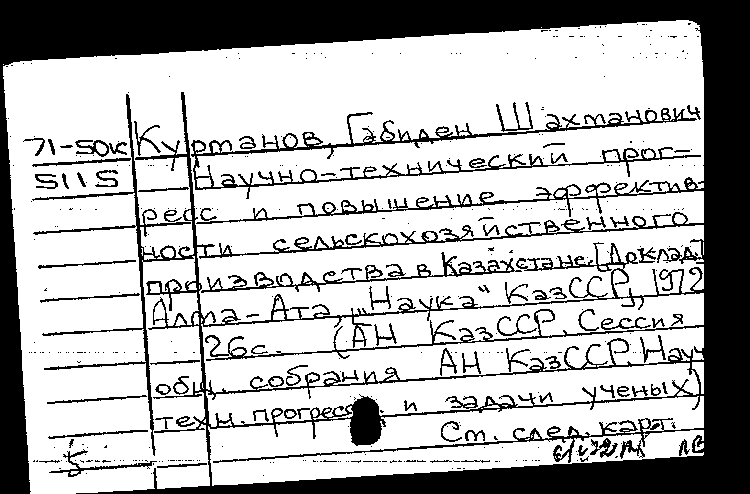 71-50к Курманов, Габиден Шахманович
5115 Научно-технический прог-
ресс и повышение эффектив-
ности сельскохозяйственного
производства в Казахстане. [Доклад.]
Алма-Ата, „Наука“ КазССР, 1972
26с. (АН КазССР. Сессия
общ. собрания АН КазССР. Науч
техн. прогресс и задачи ученых)
См. след. карт.
5